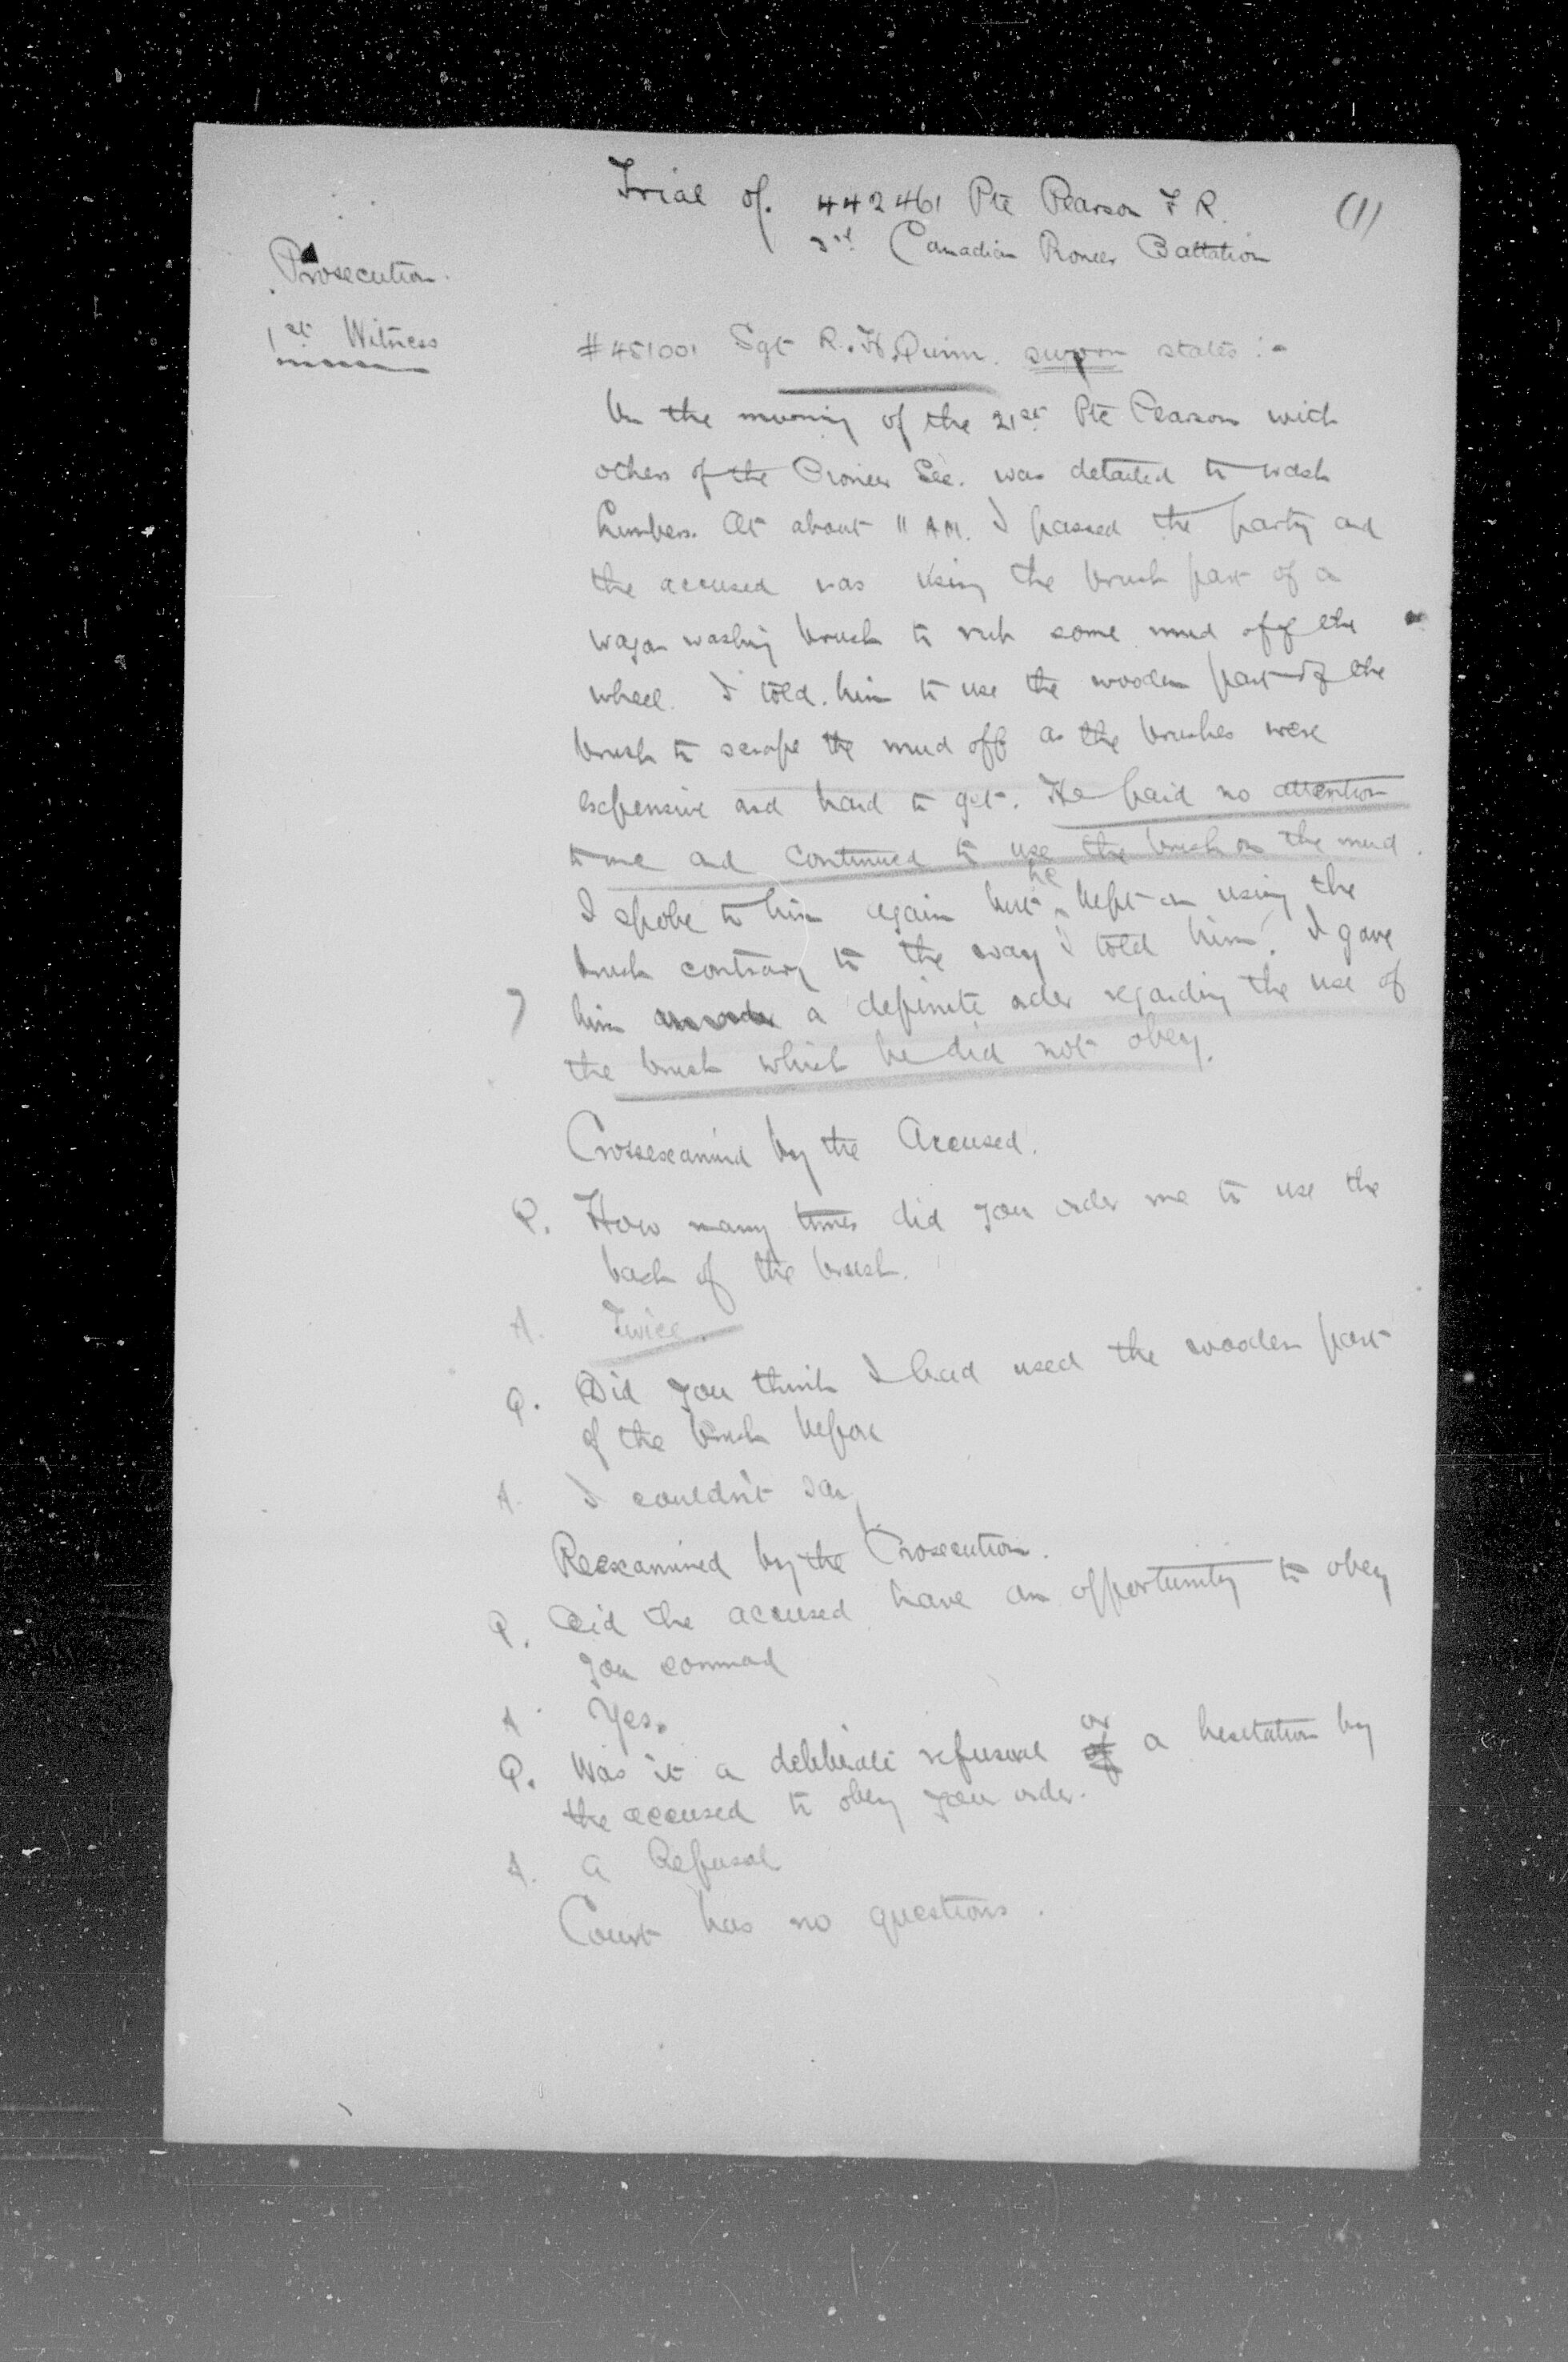 Trial of. 442461 Pte Pearson F R. (1)
3rd Canadian Pioneer Battalion
Prosecution.
1st Witness
#451001 Sgt R. H. Quinn. sworn states :-
On the morning of the 21st Pte Pearson with
others of the Pioneer Sec. was detailed to wash
limbers. At about 11 AM. I passed the party and
the accused was using the brush part of a
wagon washing brush to rub some mud off the
wheel. I told him to use the wooden part of the
brush to scrape the mud off as the brushes were
expensive and hard to get. He paid no attention
to me and continued to use the brush on the mud.
I spoke to him again but he kept on using the
brush contrary to the way I told him. I gave
him a definite order regarding the use of
the brush which he did not obey.
Crossexamined by the Accused.
Q. How many times did you order me to use the
back of the brush.
A. Twice.
Q. Did you think I had used the wooden part
of the brush before
A. I couldn't say
Reexamined by the Prosecution.
Q. Did the accused have an opportunity to obey
you command
A Yes.
Q. Was it a deliberate refusal or a hesitation by
the accused to obey your order.
A. A Refusal
Court has no questions.